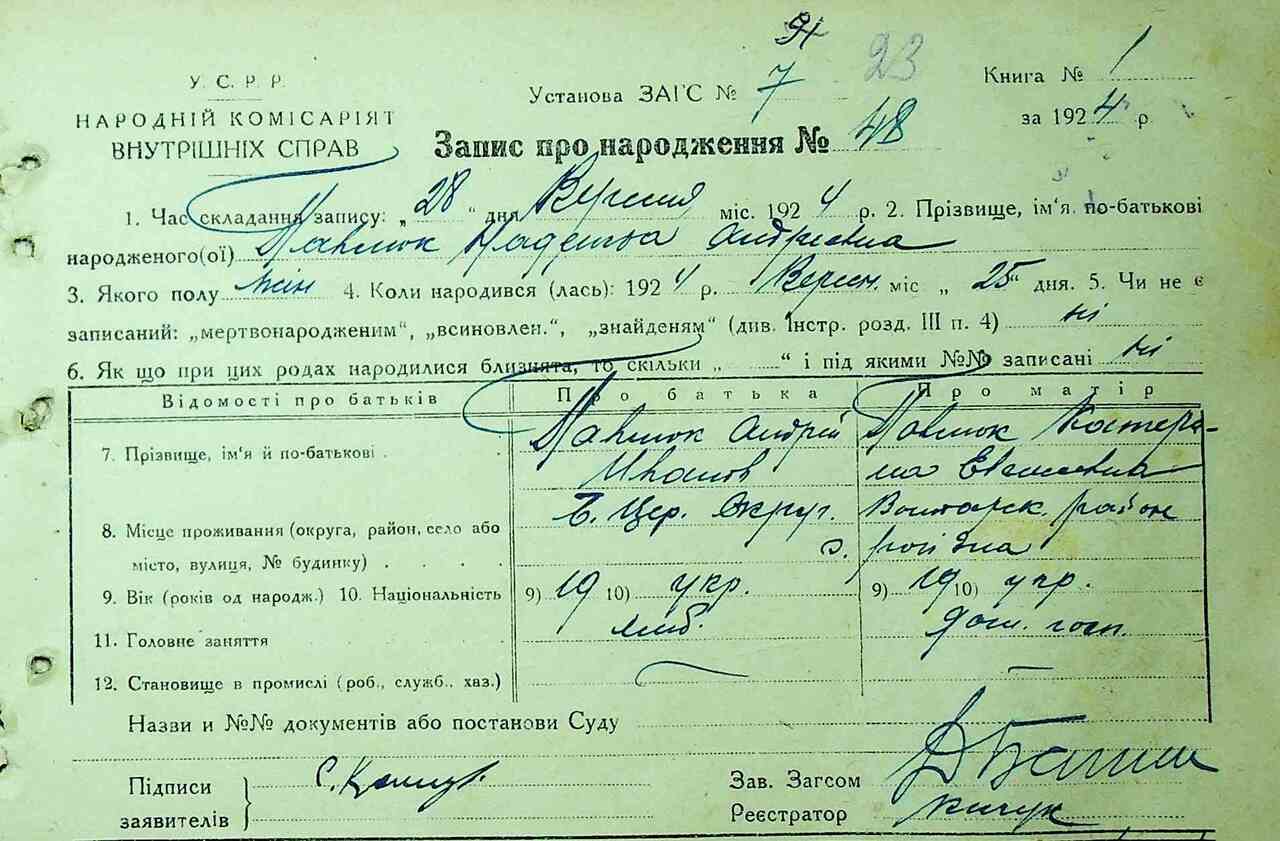 91
У. С. Р. Р.
Установа ЗАГС № 7 23
Книга № 1
НАРОДНІЙ КОМІСАРІЯТ
за 1924 р.
ВНУТРІШНІХ СПРАВ
Запис про народження № 48
1. Час складання запису: „28“ дня Вересня міс. 1924 р. 2. Прізвище, ім'я по-батькові
народженого(ої) Павлюк Надежда Андріевна
3. Якого полу жін 4. Коли народився (лась): 1924 р. Вересн. міс „25“ дня. 5. Чи не є
записаний: „мертвонародженим“, „всиновлен.“, „знайденям“ (див. Інстр. розд. III п. 4) ні
6. Як що при цих родах народилися близнята, то скільки „ “ і під якими №№ записані ні
Відомості про батьків Про батька Про матір
7. Прізвище, ім'я й по-батькові Павлюк Андрій Павлюк Катери-
Иванов на
Б. Цер. Округ. район
8. Місце проживання (округа, район, село або
с.
місто, вулиця, № будинку)
9. Вік (років од народж.) 10. Національність 9) 19 10) укр. 9) 19 10) укр.
11. Головне заняття хліб. дом. госп.
12. Становище в промислі (роб., служб., хаз.)
Назви и №№ документів або постанови Суду
Підписи
заявителів
Зав. Загсом
Реєстратор